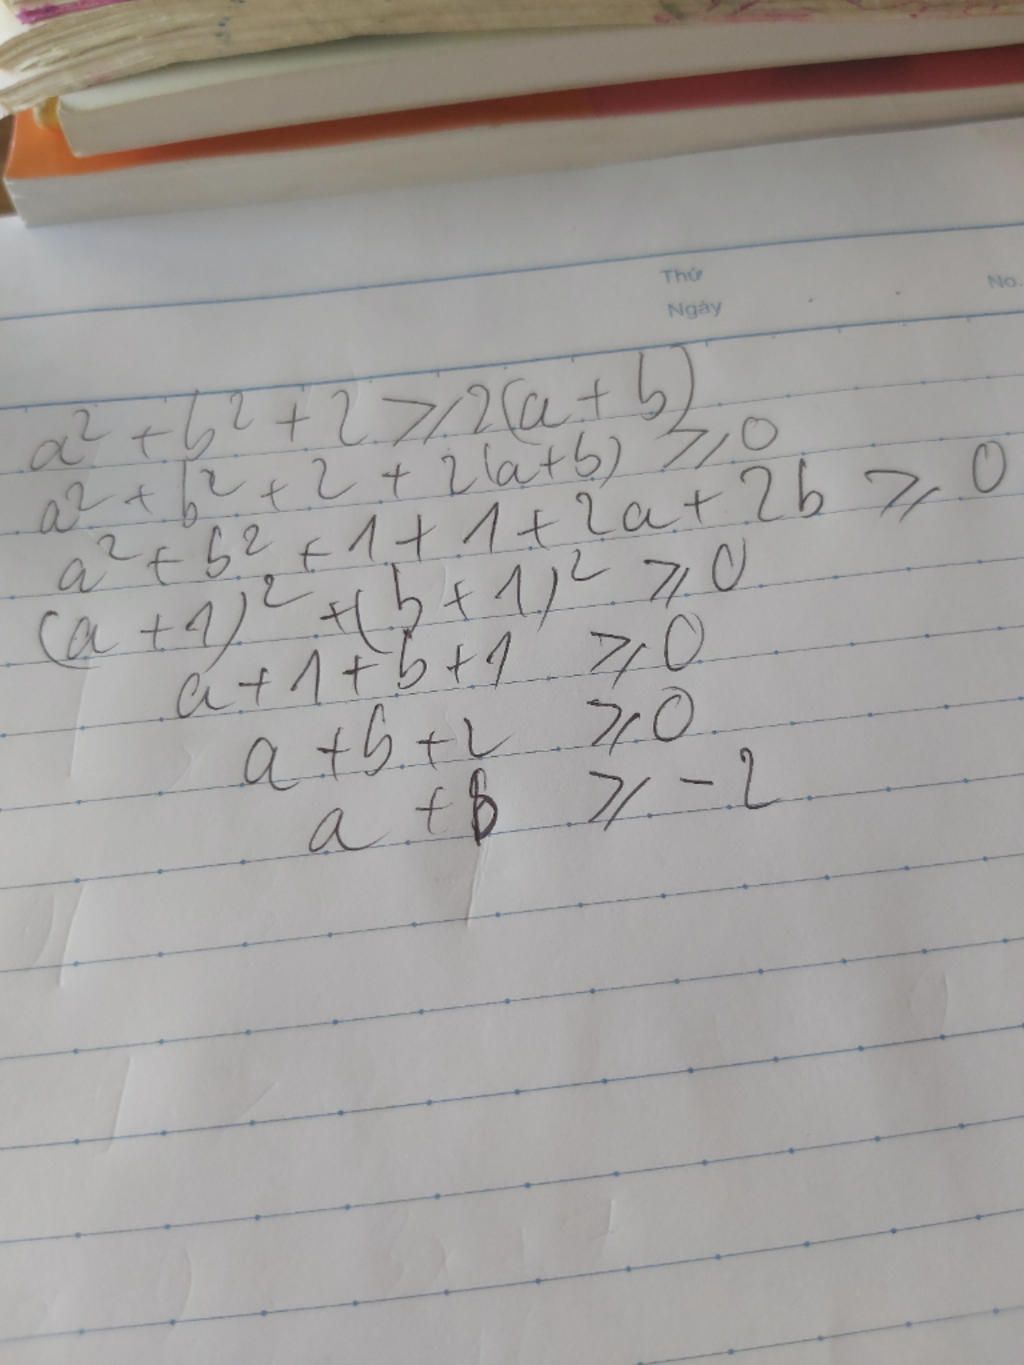 Thứ
Ngày
No.
a² + b² + 2 ⩾ 2(a + b)
a² + b² + 2 + 2(a+b) ⩾ 0
a² + b² + 1 + 1 + 2a + 2b ⩾ 0
(a + 1)² + (b + 1)² ⩾ 0
a + 1 + b + 1 ⩾ 0
a + b + 2 ⩾ 0
a + b ⩾ - 2